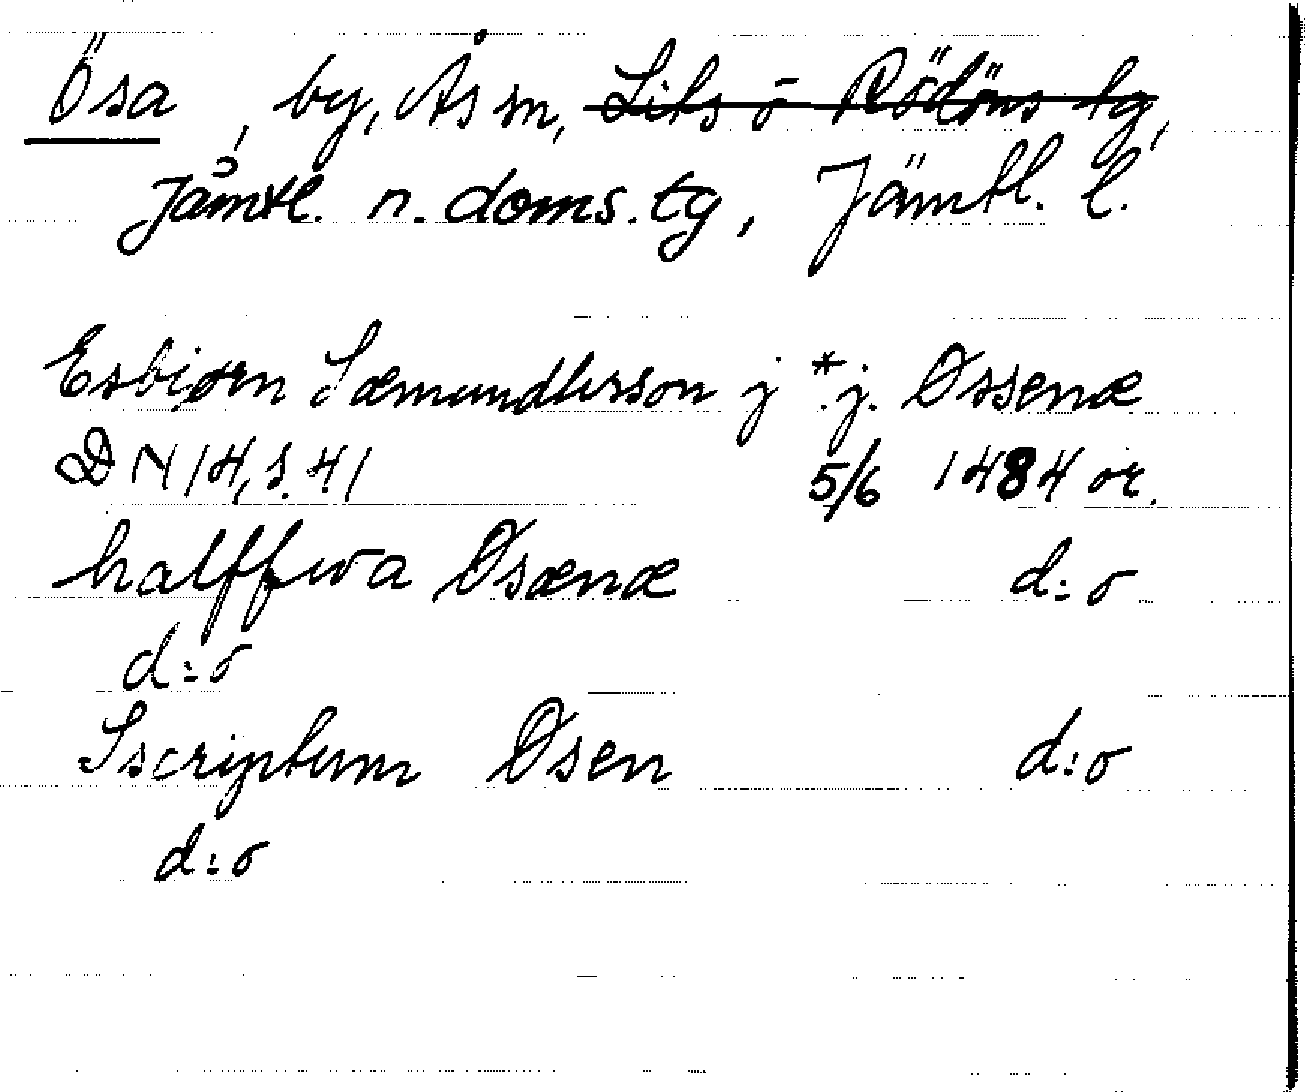 Ösa, by, Ås sn, Lits o Rödöns tg,
Jämtl. n. doms. tg, Jämtl. l.
Esbiørn Sæmundlerson j *j. Øssenæ
DN 14, s. 41 5/6 1484 or.
halffwa Øsænæ d:o
d:o
Sscriptum Øsen d:o
d:o